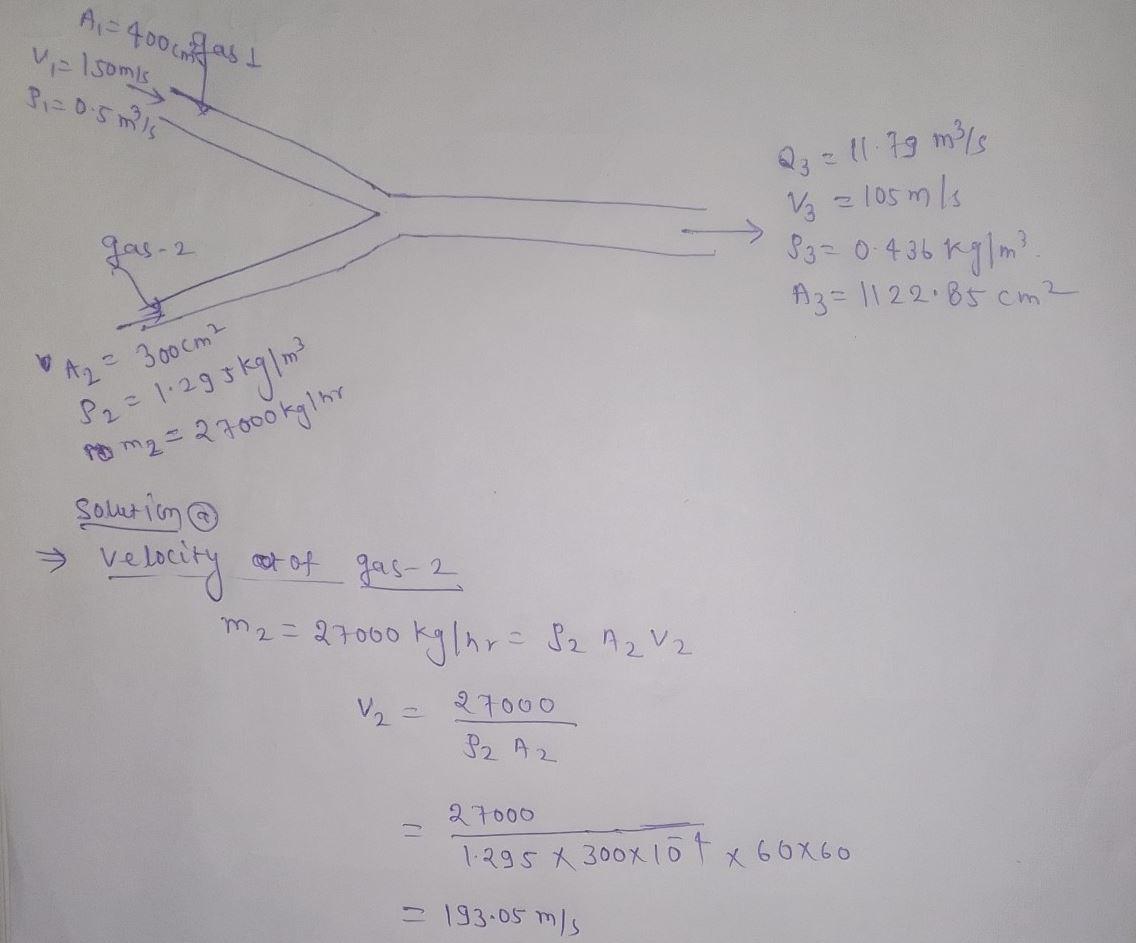 A₁ = 400cm² gas 1
V₁ = 150m/s
ρ₁ = 0.5 m³/s
Q₃ = 11.79 m³/s
V₃ = 105 m/s
ρ₃ = 0.436 kg/m³.
A₃ = 1122.85 cm²
gas-2
A₂ = 300cm²
ρ₂ = 1.295kg/m³
m₂ = 27000kg/hr
Solution ⓐ
⇒ velocity of gas-2
m₂ = 27000 kg/hr = ρ₂ A₂ V₂
V₂ = 27000
ρ₂ A₂
= 27000
1.295 × 300×10⁻⁴ × 60×60
= 193.05 m/s